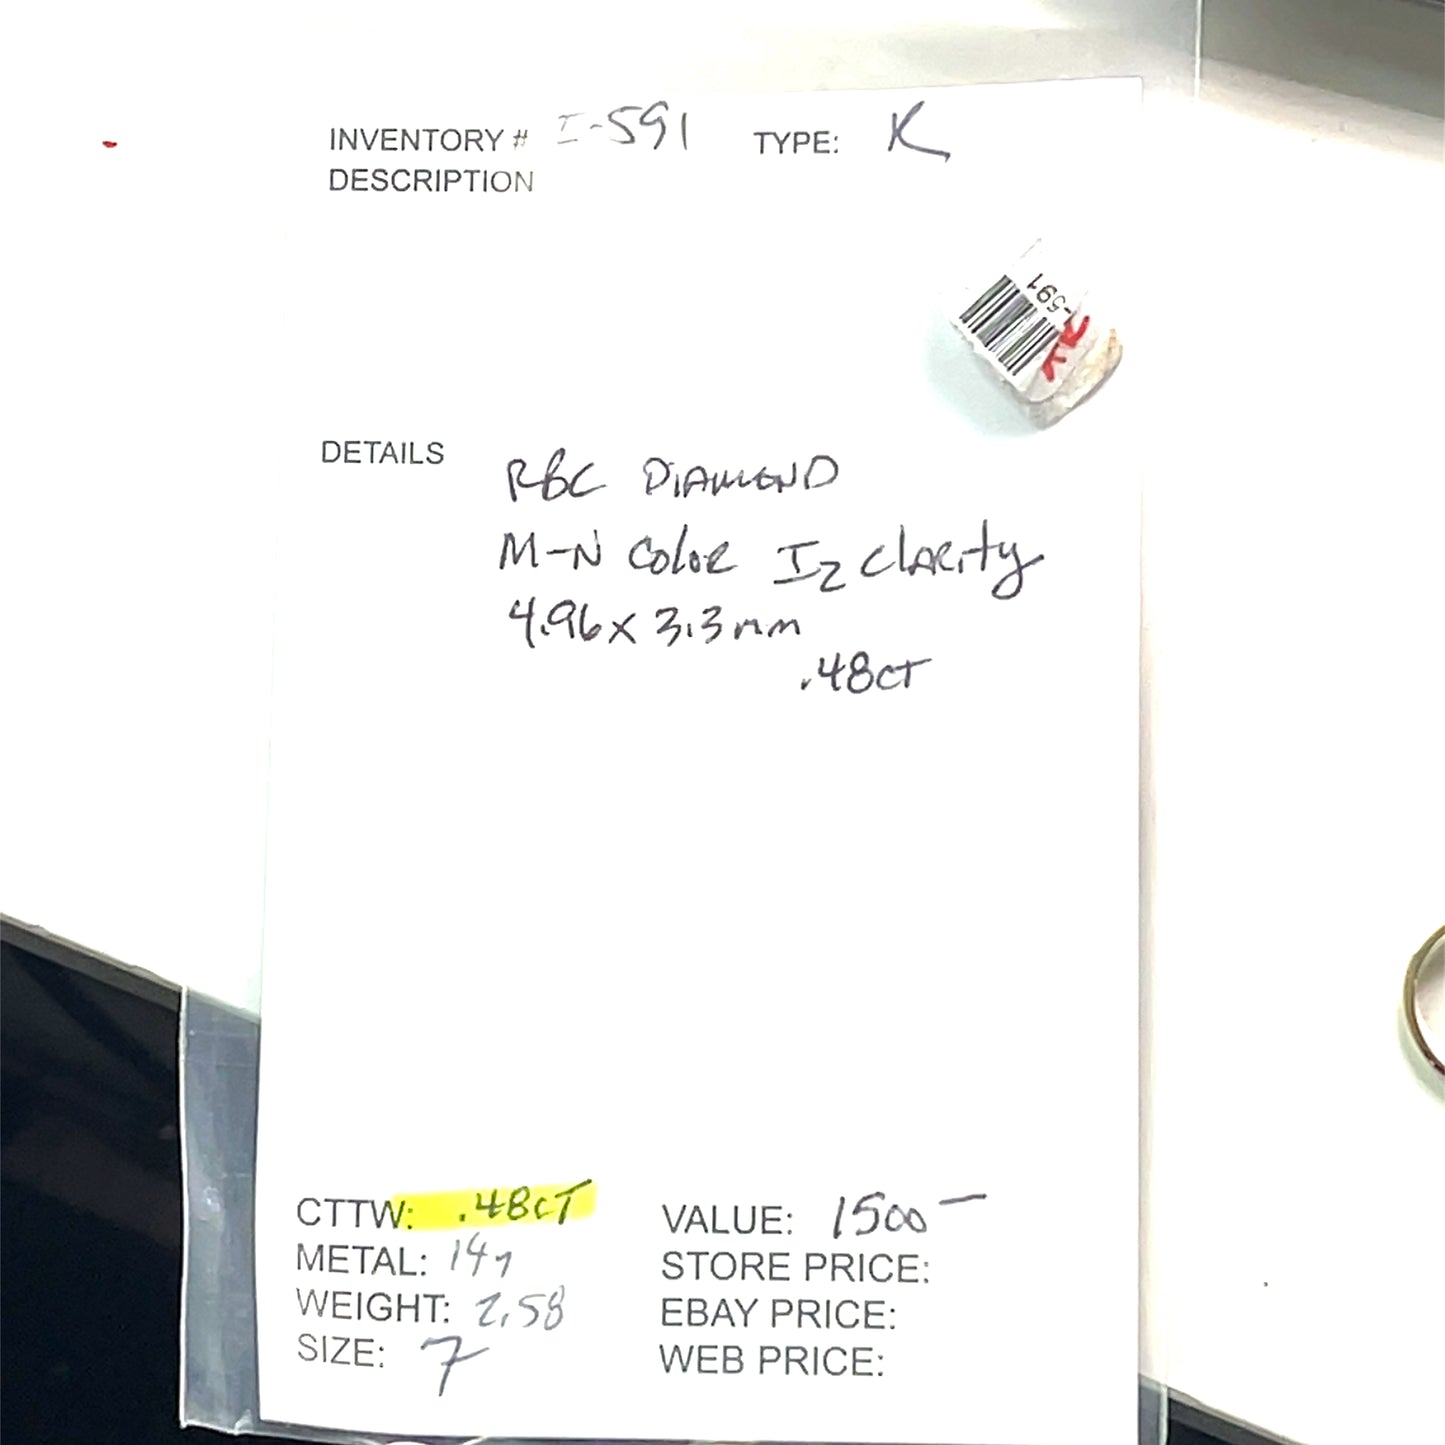 INVENTORY # I-591 TYPE: K
DESCRIPTION
-591
DETAILS RBC DIAMOND
M-N Color I2 clarity
4.96 x 3.3mm
.48CT
CTTW: .48CT VALUE: 1500-
METAL: 14y STORE PRICE:
WEIGHT: 2.58 EBAY PRICE:
SIZE: 7 WEB PRICE: